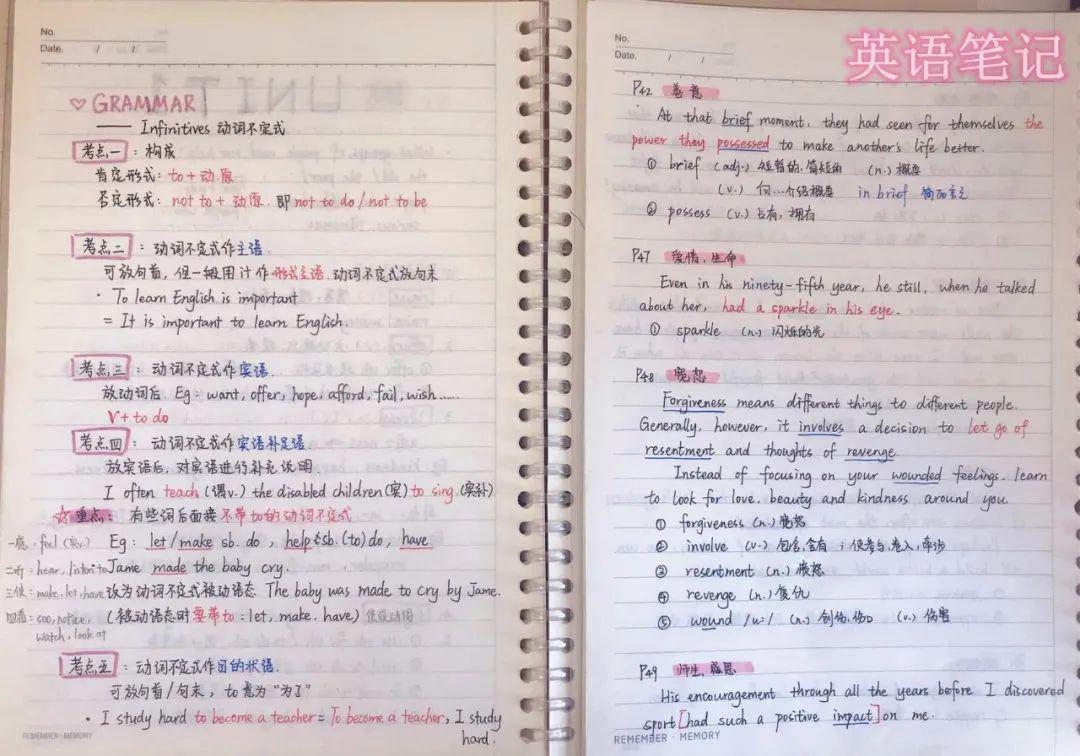 英语笔记
No.
Date. / /
♡ GRAMMAR
—— Infinitives 动词不定式
考点一：构成
肯定形式：to + 动原
否定形式：not to + 动原. 即 not to do / not to be
考点二：动词不定式作主语.
可放句首，但一般用it作形式主语.动词不定式放句末
· To learn English is important
= It is important to learn English.
考点三：动词不定式作宾语.
放动词后. Eg: want, offer, hope, afford, fail, wish......
V + to do
考点四：动词不定式作宾语补足语.
放宾语后，对宾语进行补充说明
I often teach (谓v.) the disabled children(宾) to sing.(宾补)
☆重点：有些词后面接不带to的动词不定式
一感：feel
Eg: let/make sb. do , help sb.(to)do , have
二听：hear, listen to
Jame made the baby cry.
三使：make, let, have
改为动词不定式被动语态. The baby was made to cry by Jame.
四看：see, notice,
(被动语态时要带to: let, make, have) 使役动词
watch, look at
考点五：动词不定式作目的状语.
可放句首/句末，to意为"为了"
· I study hard to become a teacher = To become a teacher, I study
hard.
REMEMBER · MEMORY
No.
Date. / /
P42 善意
At that brief moment, they had seen for themselves the
power they possessed to make another's life better.
① brief (adj.) 短暂的,简短的 (n.) 概要
(v.) 向…介绍概要 in brief 简而言之
② possess (v.) 占有,拥有
P47 爱情,生命
Even in his ninety-fifth year, he still, when he talked
about her, had a sparkle in his eye.
① sparkle (n.) 闪烁的光
P48 宽恕
Forgiveness means different things to different people.
Generally, however, it involves a decision to let go of
resentment and thoughts of revenge.
Instead of focusing on your wounded feelings, learn
to look for love, beauty and kindness around you
① forgiveness (n.) 宽恕
② involve (v.) 包含,含有；使参与,卷入,牵涉
③ resentment (n.) 愤怒
④ revenge (n.) 复仇
⑤ wound /u:/ (n.) 创伤,伤口 (v.) 伤害
P49 师生,感恩
His encouragement through all the years before I discovered
sport [had such a positive impact] on me.
REMEMBER · MEMORY